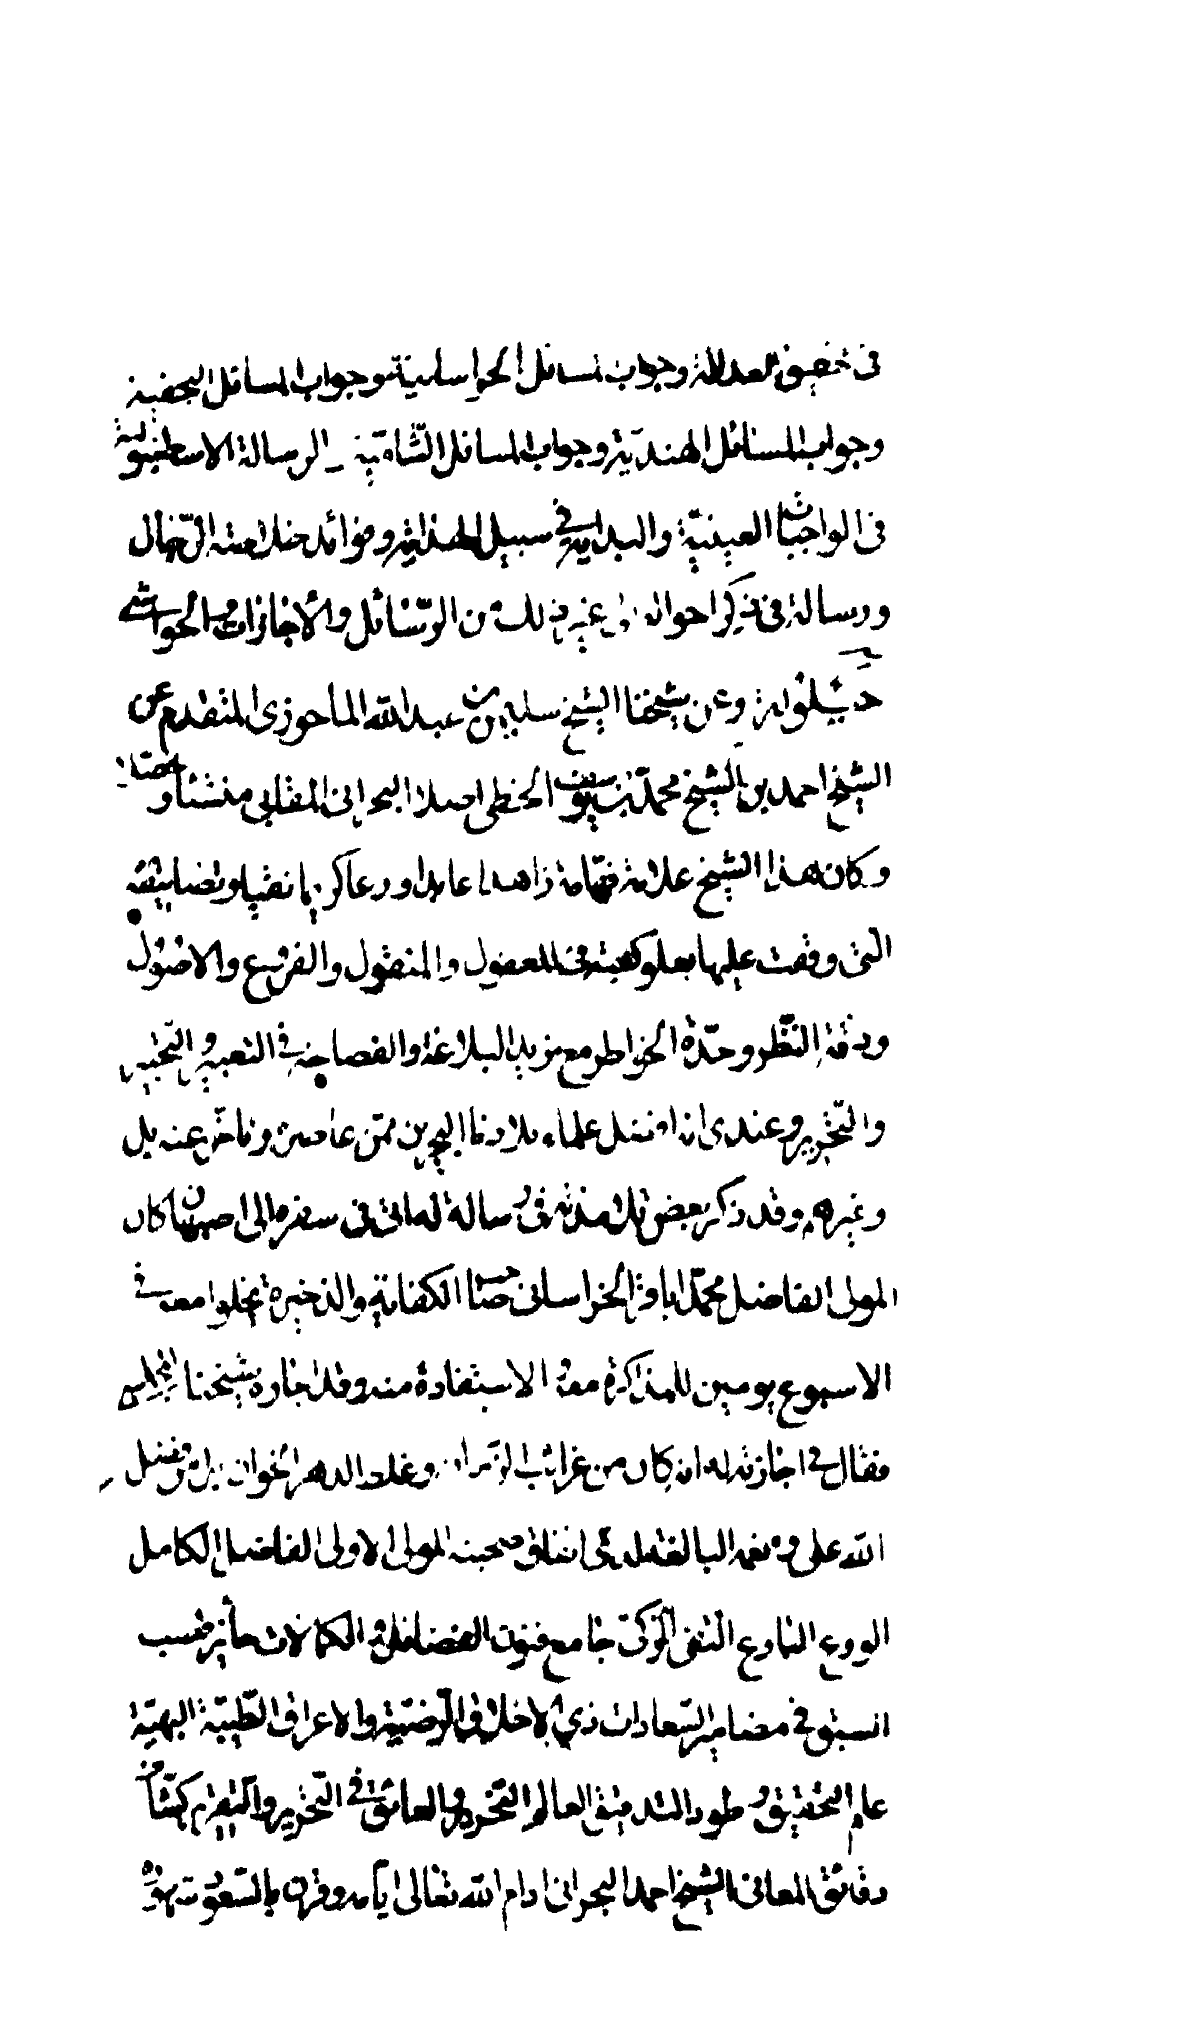 في تحقيق العدالة وجواب المسائل الخراسانية وجواب المسائل النجفية
وجواب المسائل الهندية وجواب المسائل الشامية الرسالة الاسطنبولية
في الواجبات العينية والبداية في سبيل الهداية وفوائد خلاصة الرجال
ورسالة في ذكر احواله وغير ذلك من الرسائل والاجازات والحواشي
حيلولة وعن شيخنا الشيخ سليمن بن عبد الله الماحوزي المتقدم عن
الشيخ احمد بن الشيخ محمد بن يوسف الخطي اصلا البحراني المقابي منشئا و
وكان هذا الشيخ علامة فهامة زاهدا عابدا ورعا كريما تقيا وتصانيفه
التي وقفت عليها بعلو كعبه في المعقول والمنقول والفروع والاصول
ودقة النظر وحدة الخواطر مع مزيد البلاغة والفصاحة في التعبير والتحبير
والتحرير وعندي انه افضل علماء بلادنا البحرين ممن عاصره وتاخر عنه بل
وغيرهم وقد ذكر بعض تلامذته في رسالة له انه في سفره الى اصبهان كان
المولى الفاضل محمد باقر الخراساني صاحب الكفاية والذخيرة يخلو معه في
الاسبوع يومين للمذاكرة معه الاستفادة منه وقد اجازه شيخنا المجلسي
فقال في اجازته له انه كان من غرائب الزمان وغلط الدهر الخوان بل من فضل
الله علي ونعمه البالغة لدي اتفاق صحبة المولى الاولى الفاضل الكامل
الورع البارع التقي الزكي جامع فنون الفضائل والكمالات حائز قصب
السبق في مضامير السعادات ذي الاخلاق الرضية والاعراق الطيبة البهية
علم التحقيق وطود التدقيق العالم النحرير والفائق في التحرير والتقرير كشاف
دقائق المعاني الشيخ احمد البحراني ادام الله تعالى ايامه وقرن بالسعود